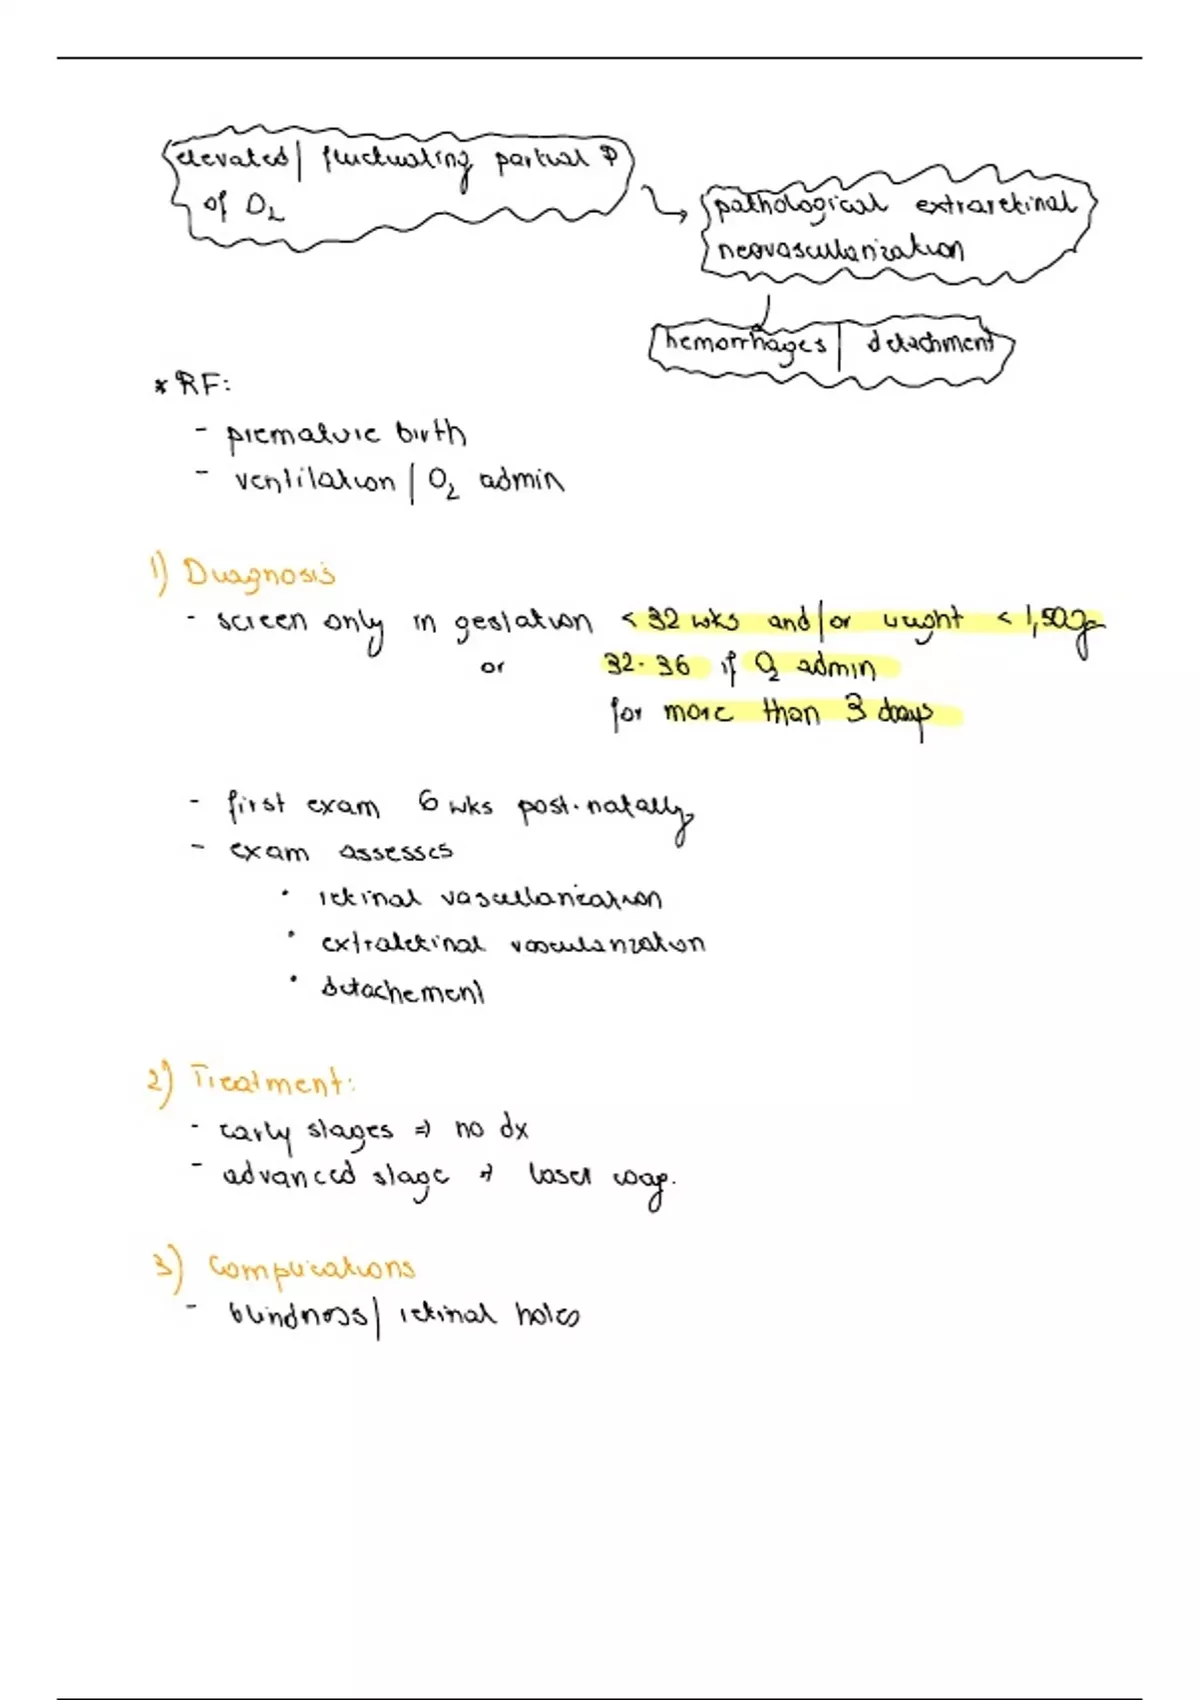 elevated | fluctuating partial P
of O₂
pathological extraretinal
neovascularization
hemorrhages | detachment
* RF:
- premature birth
- ventilation | O₂ admin
1) Diagnosis
- screen only in gestation < 32 wks and/or weight < 1,500g
or 32-36 if O₂ admin
for more than 3 days
- first exam 6 wks post-natally
- exam assesses
• retinal vascularization
• extraretinal vascularization
• detachement
2) Treatment:
- early stages ⇒ no dx
- advanced stage ⇒ laser coag.
3) Complications
- blindness | retinal holes